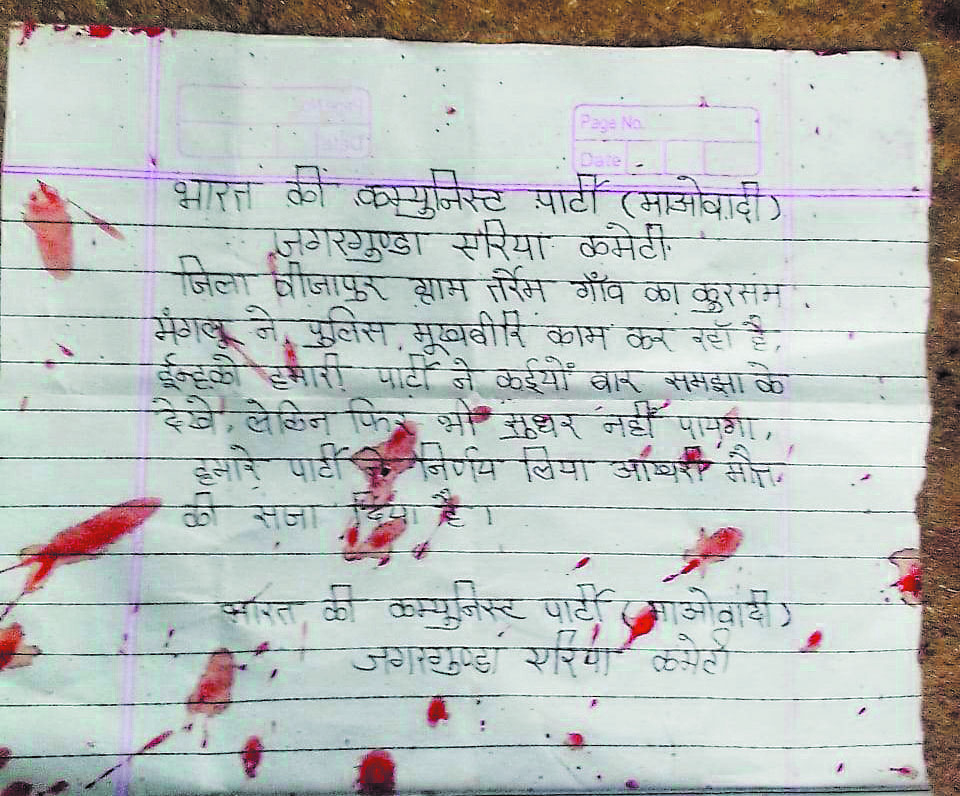 Page No.
Date
भारत की कम्युनिस्ट पार्टी (माओवादी)
जगरगुण्डा एरिया कमेटी
जिला बीजापुर ग्राम तर्रेम गाँव का कुरसम
मंगलू ने पुलिस मूखबीरि काम कर रहाँ है,
ईन्हको हमारी पार्टी ने कईयों बार समझा के
देखे, लेकिन फिर भी सुधर नहीं पायगा,
हमारे पार्टी ने निर्णय लिया आखरी मौत
की सजा दिया है।
भारत की कम्युनिस्ट पार्टी (माओवादी)
जगरगुण्डा एरिया कमेटी